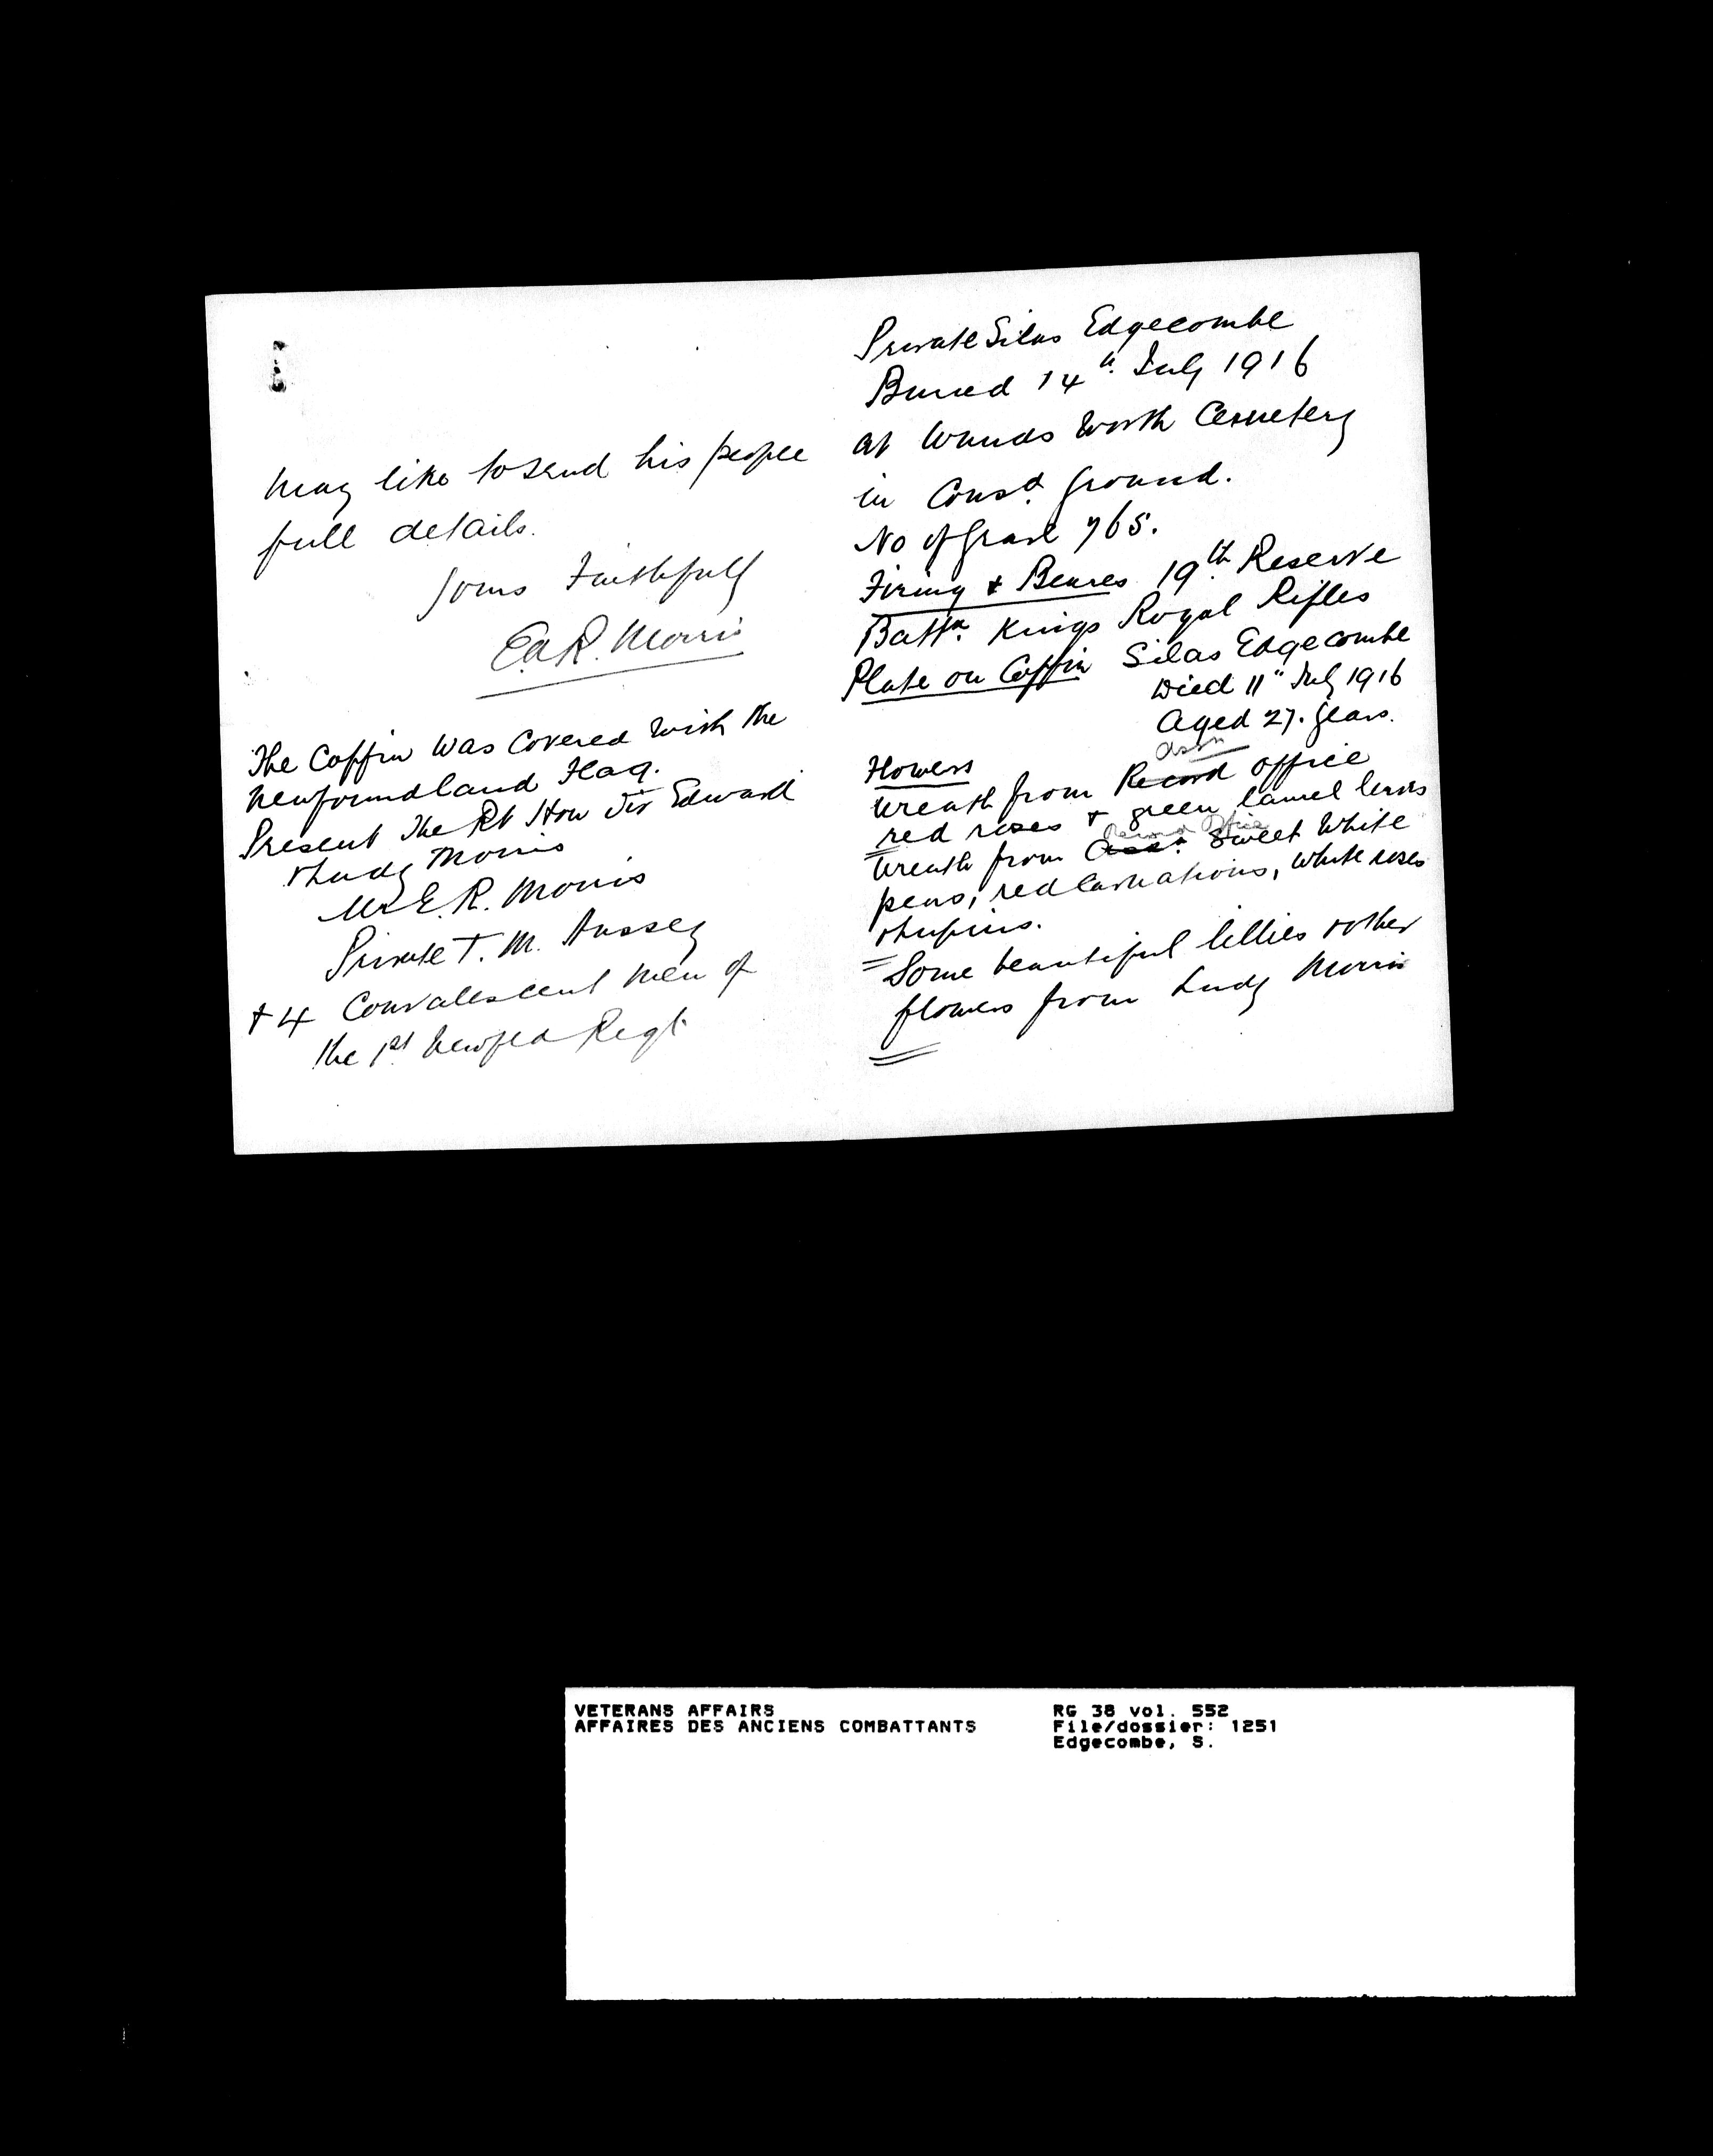 may like to send his people
full details.
Yours Faithfully
Ed R. Morris
The Coffin was Covered with the
Newfoundland Flag.
Present The Rt Hon Sir Edward
& Lady Morris
Mr E. R. Morris
Private T. M.
+ 4 Convalescent men of
the 1st Newfld Regt
Private Silas Edgecombe
Buried 14th July 1916
at Wandsworth Cemetery
in Consd ground.
No of Grave 765.
Firing & Bearers 19th Reserve
Battn Kings Royal Rifles
Plate on Coffin Silas Edgecombe
Died 11" July 1916
Aged 27. years.
Flowers
assn
Wreath from Record office
red roses & green laurel leaves
Office
Wreath from Assn. Sweet White
peas, red Carnations, white roses
& lupins.
Some beautiful lillies & other
flowers from Lady Morris
VETERANS AFFAIRS
AFFAIRES DES ANCIENS COMBATTANTS
RG 38 vol. 552
File/dossier: 1251
Edgecombe, S.